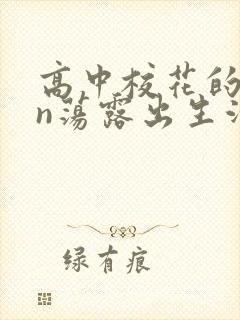 高中校花的
n荡露出生
绿有痕